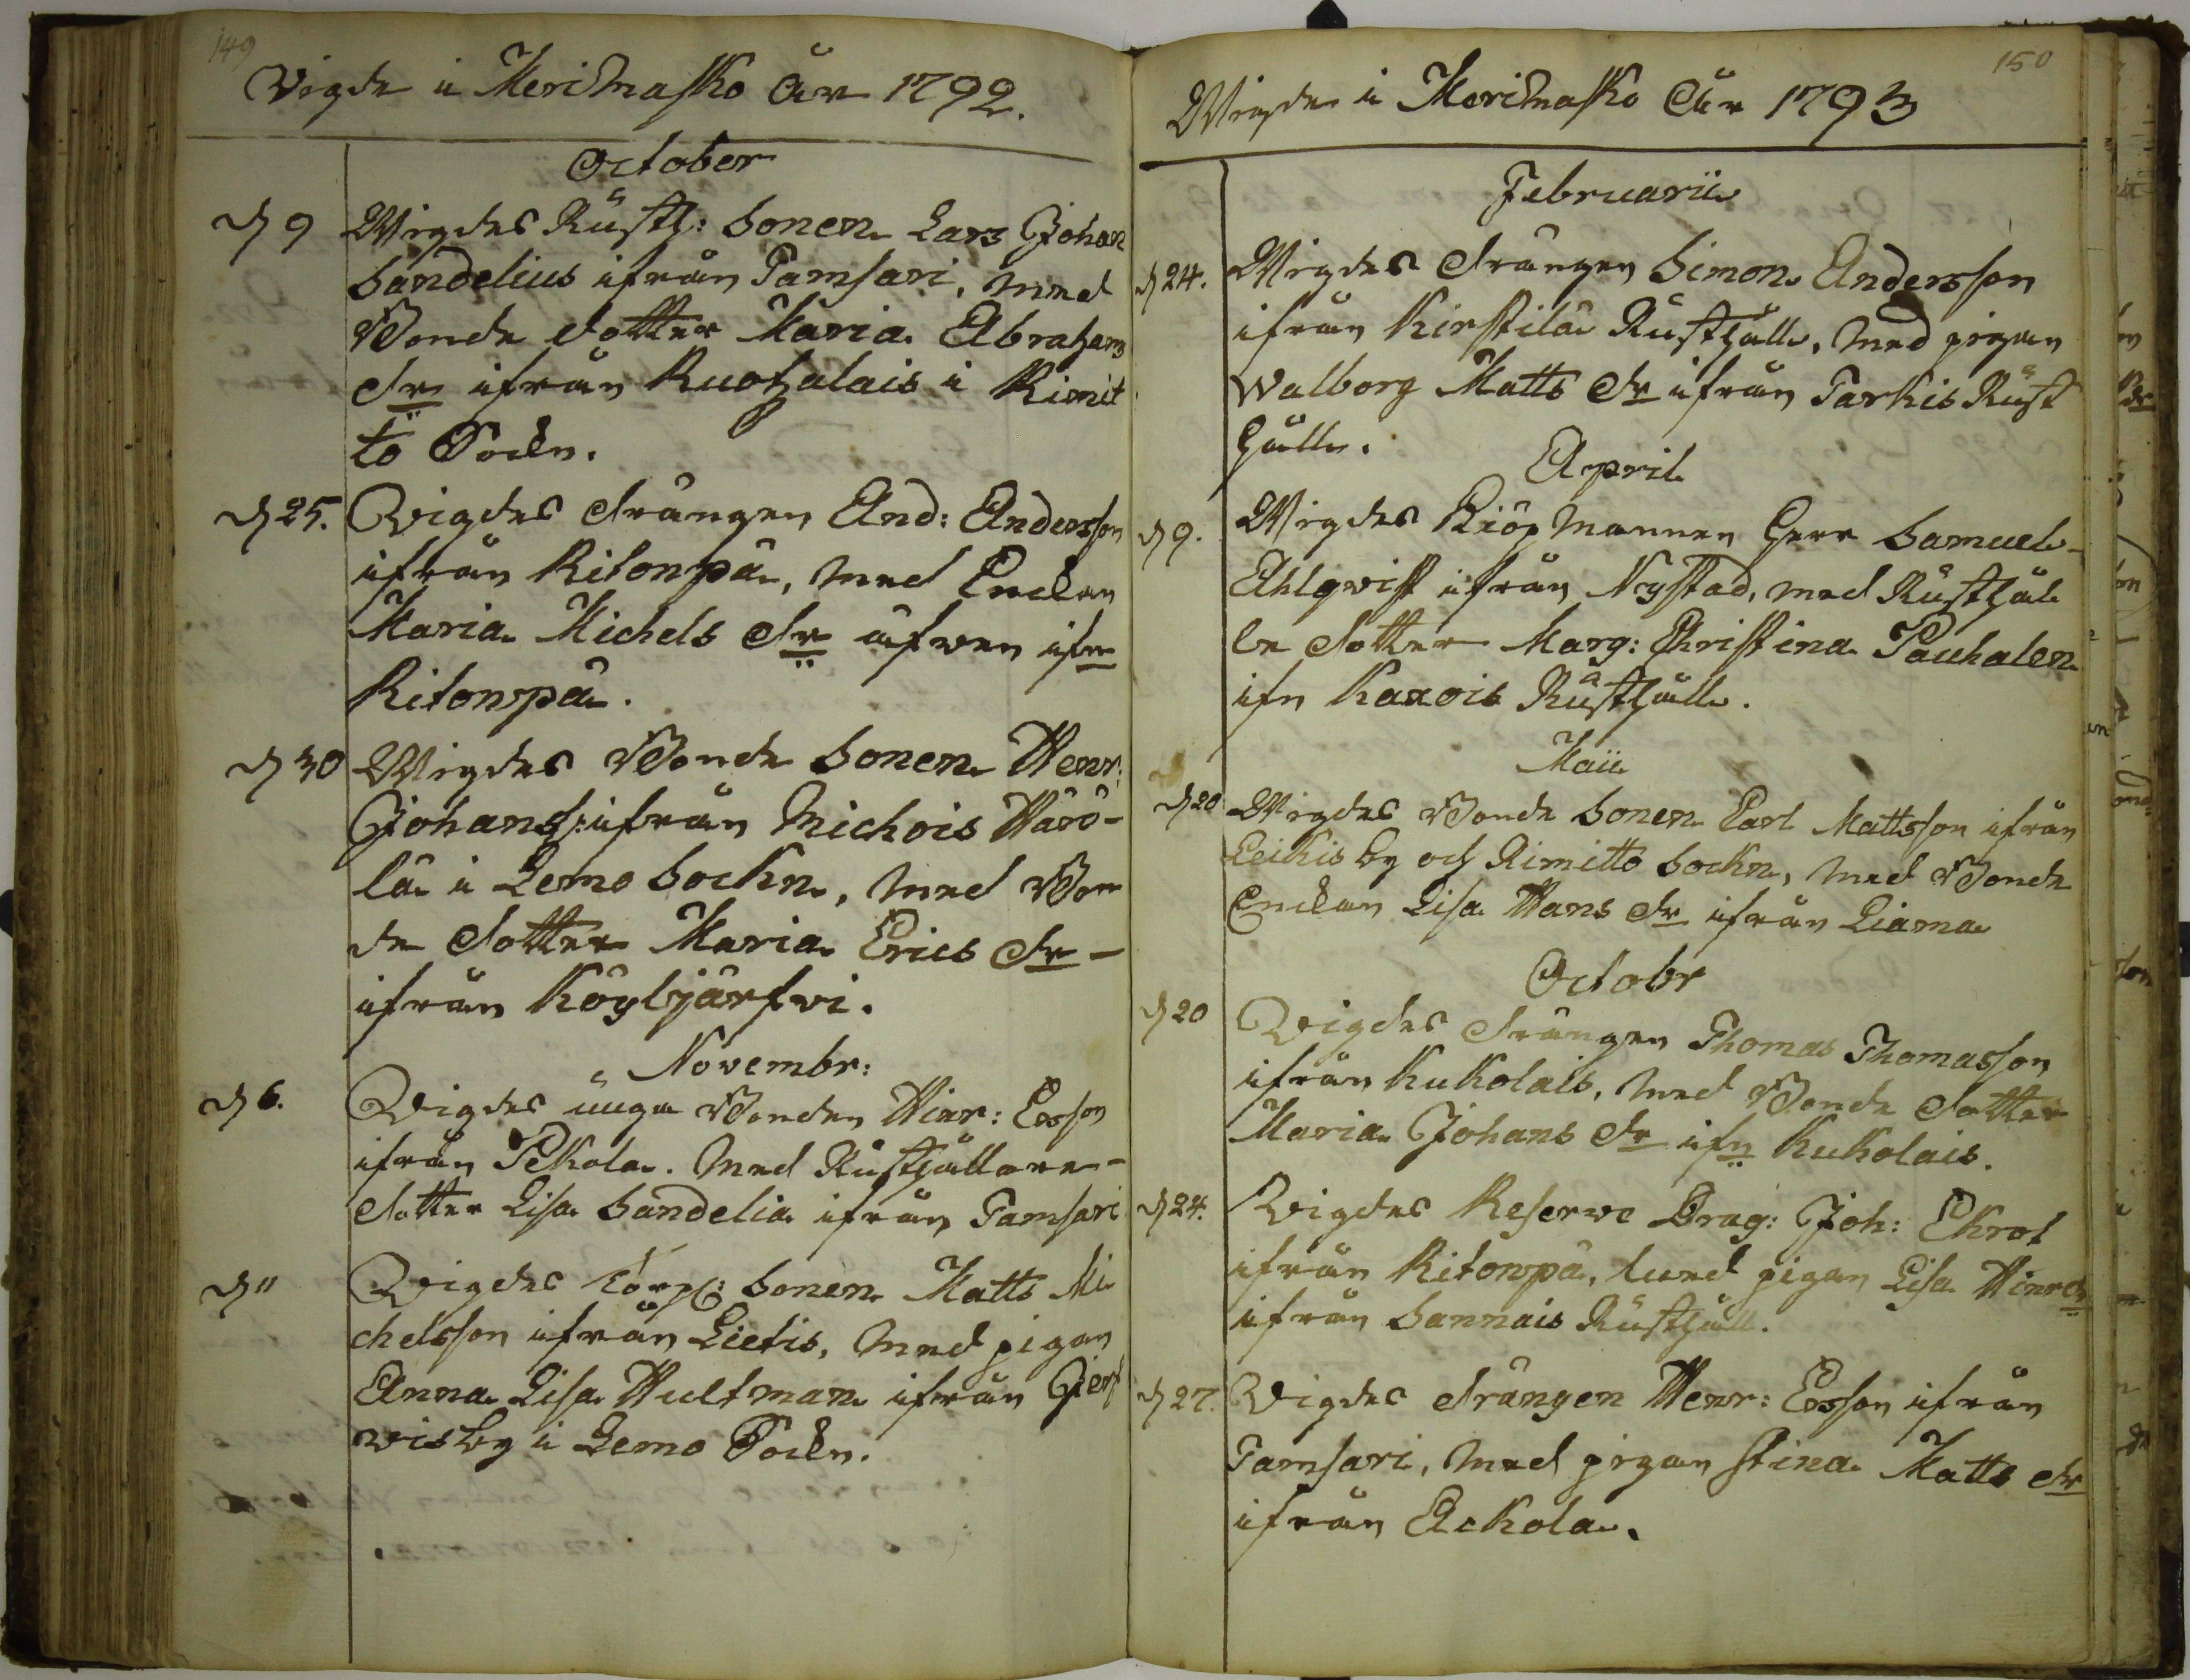 149
Vigde i Merimasko År 1792.
October
d 9 Wigdes Rusth: Sonen Lars Johan
Sandelius ifrån Tamsari, med
Bonde dotter Maria Abrahams
dr ifrån Ruohalais i Rimit
to Sockn.
d 25. Vigdes drängen And: Andersson
ifrån Ritonpä, med Enckan
Maria Michels dr äfwen ifn
Ritonpä.
d 30 Wigdes Bonde Sonen Henr:
Johans: ifrån Michois Härö-
lä i Lemo Sockn, med Bon
de dotter Maria Erics dr -
ifrån Köyljärfwi.
Novembr:
d 6. Vigdes unga Bonden Hinr: Ersson
ifrån Pekola. med Rusthållare-
dotter Lisa Sandelia ifrån Tamsari
d 11 Vigdes Torp: Sonen Matts Mi
chelsson ifrån Lietis, med pigan
Anna Lisa Hultman ifrån Gierf
wisby i Lemo Sockn.
150
Wigde i Merimasko År 1793
Februarii
d 24. Wigdes drängen Simon Andersson
ifrån Kirstilä Rusthåll, med pigan
Walborg Matts dr ifrån Tarkis Rust
håll.
April
d 9. Wigdes Kiöpmannen Herr Samuel
Ahlqwist ifrån Nystad, med Rusthål
le dotter Marg: Christina Pauhalen
ifn Karois Rusthåll.
Maii
d 20 Wigdes Bonde Sonen Carl Mattsson ifrån
Leikis by och Rimitto Sockn, med Bonde
Enckan Lisa Hans dr ifrån Liama
Octobr
d 20 Vigdes drängen Thomas Thomasson
ifrån Kukolais, med Bonde dotter
Maria Johans dr ifn Kukolais.
d 24. Vigdes Reserwe Drag: Joh: Ekrot
ifrån Ritonpä, med pigan Lisa Hinrdr
ifrån Sannais Rusthåll.
d 27. Vigdes drängen Henr: Ersson ifrån
Tamsari, med pigan Stina Matts dr
ifrån Ackola.